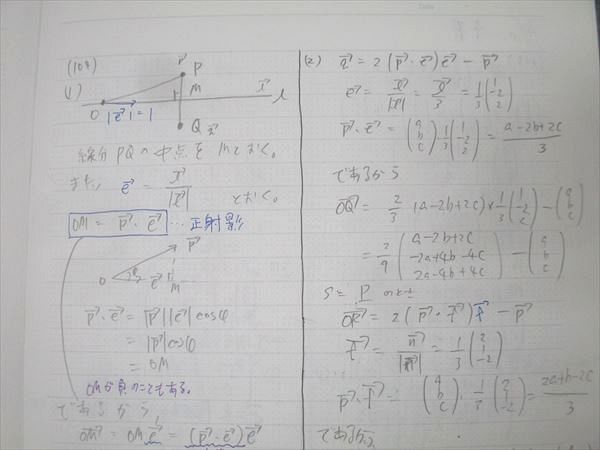 (104)
(1)
P⃗
P
M
l⃗
l
O
|e⃗| = 1
Q
線分PQの中点をMとおく。
また、 e⃗ = l⃗ / |l⃗| とおく。
OM = p⃗・e⃗ … 正射影
P⃗
O
e⃗
M
p⃗・e⃗ = |p⃗||e⃗|cosφ
= |p⃗|cosφ
= OM
OMが負のこともある。
であるから、
OM⃗ = OM e⃗ = (p⃗・e⃗)e⃗
(2) q⃗ = 2(p⃗・e⃗)e⃗ - p⃗
e⃗ = l⃗ / |l⃗| = l⃗ / 3 = 1/3 (1 -2 2)
p⃗・e⃗ = (a b c)・1/3 (1 -2 2) = (a-2b+2c) / 3
であるから
OQ⃗ = 2/3 (a-2b+2c) × 1/3 (1 -2 2) - (a b c)
= 2/9 (a-2b+2c -2a+4b-4c 2a-4b+4c) - (a b c)
のとき
OR⃗ = 2(p⃗・f⃗)f⃗ - p⃗
f⃗ = n⃗ / |n⃗| = 1/3 (2 1 -2)
p⃗・f⃗ = (a b c)・1/3 (2 1 -2) = (2a+b-2c) / 3
であるから、